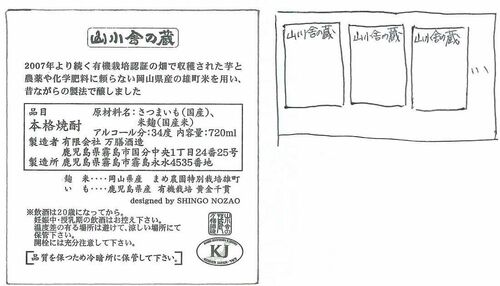 山小舎の蔵
2007年より続く有機栽培認証の畑で収穫された芋と
農薬や化学肥料に頼らない岡山県産の雄町米を用い、
昔ながらの製法で醸しました
品目 原材料名:さつまいも(国産)、
本格焼酎 米麹(国産米)
アルコール分:34度 内容量:720ml
製造者 有限会社 万膳酒造
鹿児島県霧島市国分中央1丁目24番25号
製造所 鹿児島県霧島市霧島永水4535番地
麹 米‥‥岡山県産 まめ農園特別栽培雄町
い も‥‥鹿児島県産 有機栽培 黄金千貫
designed by SHINGO NOZAO
※飲酒は20歳になってから。
妊娠中・授乳期の飲酒はお控え下さい。
温度差の有る場所は避けて、涼しい場所にて
保管下さい。
開栓には充分注意して下さい。
品質を保つため冷暗所に保管して下さい。
KJ
山小舎の蔵
山小舎の蔵
山小舎の蔵